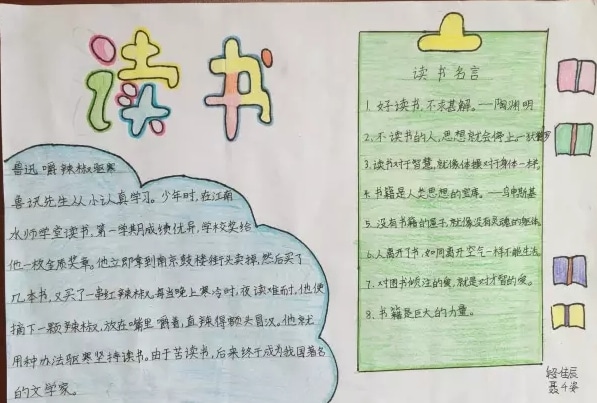 读书
鲁迅嚼辣椒驱寒
鲁迅先生从小认真学习。少年时,在江南
水师学堂读书,第一学期成绩优异,学校奖给
他一枚金质奖章。他立即拿到南京鼓楼街头卖掉,然后买了
几本书,又买了一串红辣椒。每当晚上寒冷时,夜读难耐,他便
摘下一颗辣椒,放在嘴里嚼着,直辣得额头冒汗。他就
用种办法驱寒坚持读书。由于苦读书,后来终于成为我国著名
的文学家。
读书名言
1.好读书,不求甚解。——陶渊明
2.不读书的人,思想就会停止。——狄德罗
3.读书对于智慧,就像体操对于身体一样。
4.书籍是人类思想的宝库。——乌申斯基
5.没有书籍的屋子,就像没有灵魂的躯体。
6.人离开了书,如同离开空气一样不能生活。
7.对图书倾注的爱,就是对才智的爱。
8.书籍是巨大的力量。
佳辰